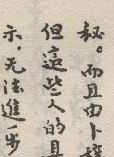 秘。而且由卜辞
但這些人的具
示，无法進一步